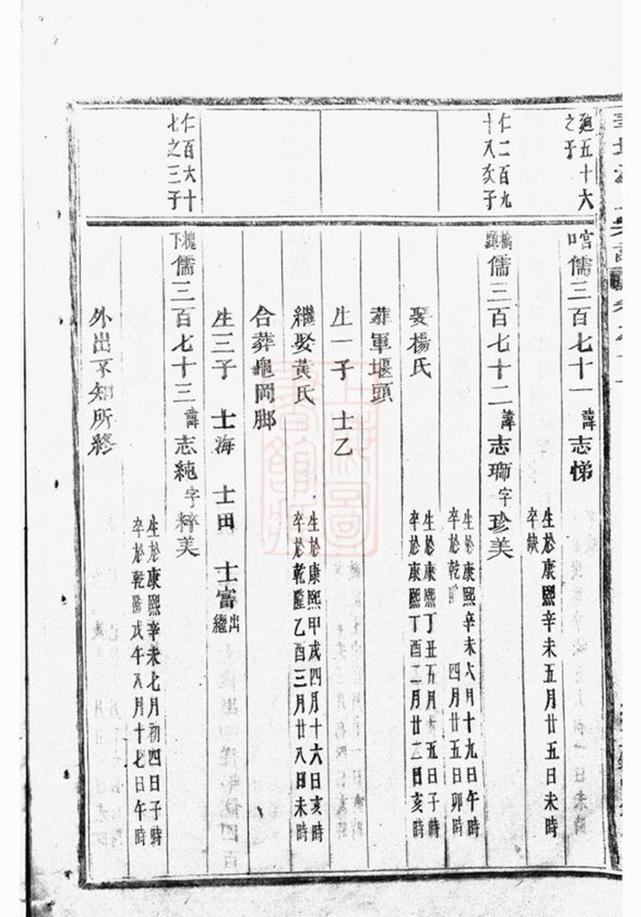 廻五十六
之子
宮
口
儒三百七十一諱志悌
生於康熙辛未五月廿五日未時
卒缺
仁二百九
十八次子
橋
頭
儒三百七十二諱志瑯字珍美
生於康熙辛未六月十九日午時
卒於乾隆 四月廿五日卯時
娶楊氏
生於康熙丁丑五月 五日子時
卒於康熙丁酉二月廿三日亥時
葬軍堰頭
生一子 士乙
繼娶黃氏
生於康熙甲戌四月十六日亥時
卒於乾隆乙酉三月廿八日未時
合葬龜岡脚
生三子 士海 士田 士富出繼
仁百六十
七之三子
槐
下
儒三百七十三諱志純字粹美
生於康熙辛未七月初四日子時
卒於乾隆戊午八月十七日午時
外出不知所終